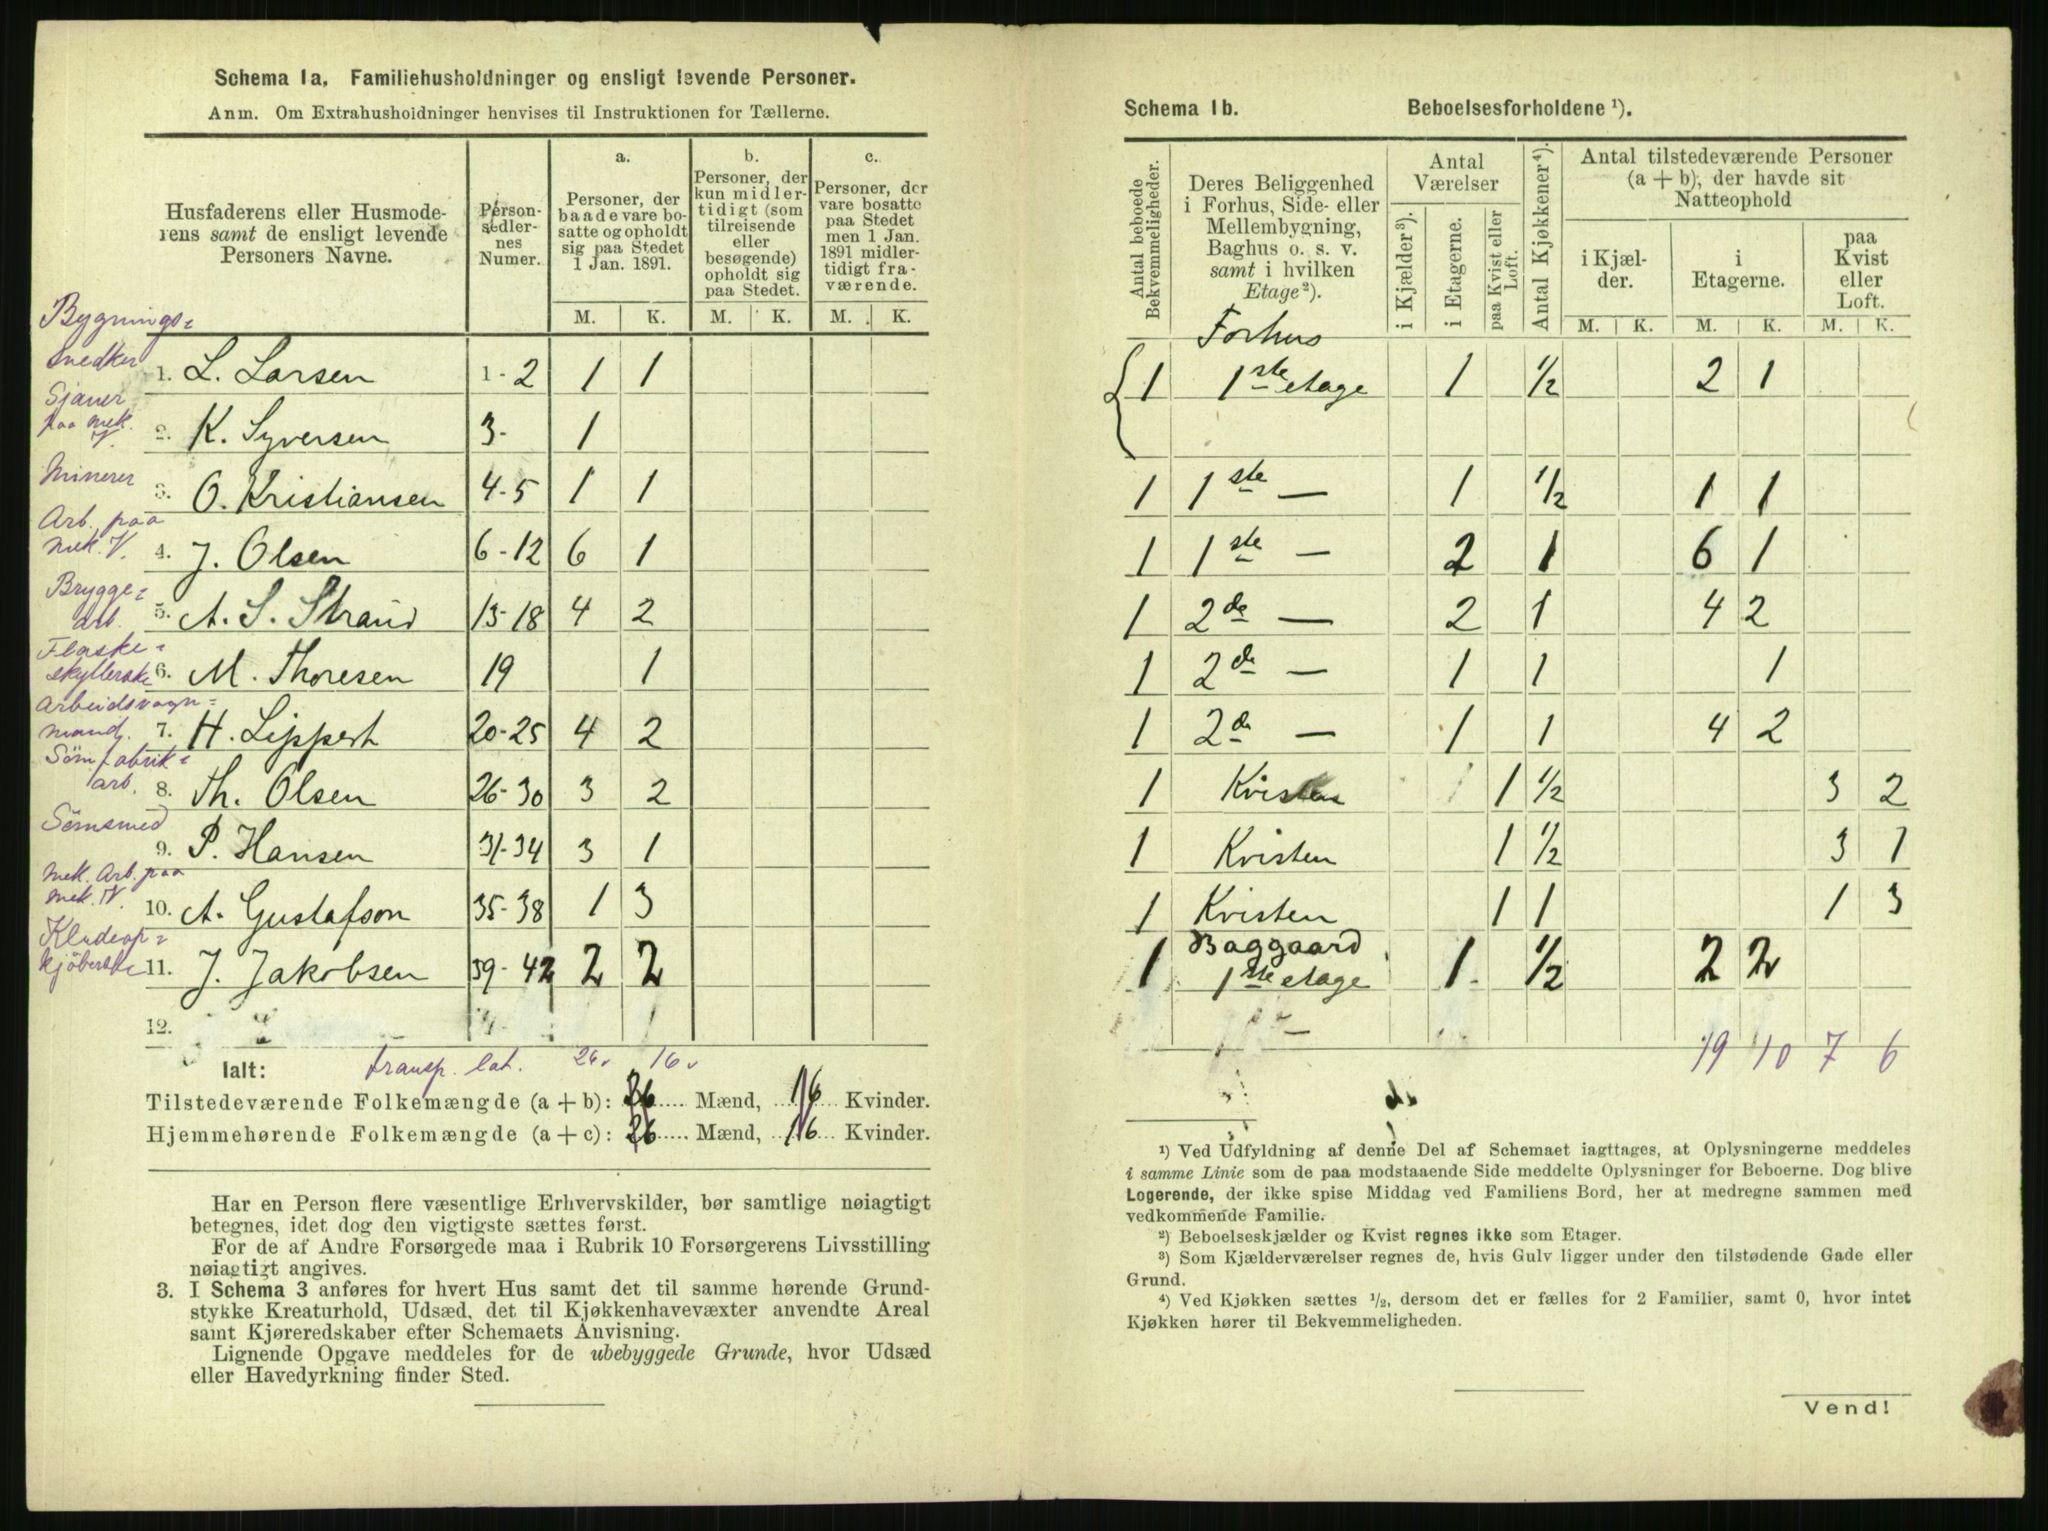 Schema 1a. Familiehusholdninger og ensligt levende Personer.
Anm. Om Extrahusholdninger henvises til Instruktionen for Tællerne.
Husfaderens eller Husmoderens samt de ensligt levende Personers Navne.
Personsedlernes Numer.
a. Personer, der baade vare bosatte og opholdt sig paa Stedet 1 Jan. 1891.
b. Personer, der kun midlertidigt (som tilreisende eller besøgende) opholdt sig paa Stedet.
c. Personer, der vare bosatte paa Stedet men 1 Jan. 1891 midlertidigt fraværende.
M. K. M. K. M. K.
Bygnings=
Snedker 1. L. Larsen 1-2 1 1
Sjauer
paa mek. V. 2. K. Syversen 3- 1
Minerer 3. O. Kristiansen 4-5 1 1
Arb. paa
mek. V. 4. J. Olsen 6-12 6 1
Brygge=
arb. 5. A. S. Strand 13-18 4 2
Flaske=
skyllerske 6. M. Thoresen 19 1
Arbeidsvogn=
mand. 7. H. Lippert 20-25 4 2
Sömfabrik=
arb. 8. Th. Olsen 26-30 3 2
Sömsmed
9. P. Hansen 31-34 3 1
Mek. Arb. paa
mek. V. 10. A. Gustafson 35-38 1 3
Kludeop=
kjöberske 11. J. Jakobsen 39-42 2 2
12.
Ialt: transp. lat. 26 16
Tilstedeværende Folkemængde (a + b): 26 Mænd, 16 Kvinder.
Hjemmehørende Folkemængde (a + c): 26 Mænd, 16 Kvinder.
Har en Person flere væsentlige Erhvervskilder, bør samtlige nøiagtigt
betegnes, idet dog den vigtigste sættes først.
For de af Andre Forsørgede maa i Rubrik 10 Forsørgerens Livsstilling
nøiagtigt angives.
3. I Schema 3 anføres for hvert Hus samt det til samme hørende Grund-
stykke Kreaturhold, Udsæd, det til Kjøkkenhavevæxter anvendte Areal
samt Kjøreredskaber efter Schemaets Anvisning.
Lignende Opgave meddeles for de ubebyggede Grunde, hvor Udsæd
eller Havedyrkning finder Sted.
Schema 1b. Beboelsesforholdene ¹).
Antal beboede Bekvemmeligheder.
Deres Beliggenhed i Forhus, Side- eller Mellembygning, Baghus o. s. v. samt i hvilken Etage²).
Antal Værelser
i Kjælder³).
i Etagerne.
paa Kvist eller Loft.
Antal Kjøkkener⁴).
Antal tilstedeværende Personer (a + b), der havde sit Natteophold
i Kjælder.
i Etagerne.
paa Kvist eller Loft.
M. K. M. K. M. K.
Forhus
1 1ste etage 1 1/2 2 1
1 1ste — 1 1/2 1 1
1 1ste — 2 1 6 1
1 2de — 2 1 4 2
1 2de — 1 1 1
1 2de — 1 1 4 2
1 Kvisten 1 1/2 3 2
1 Kvisten 1 1/2 3 1
1 Kvisten 1 1 1 3
Baggaard
1 1ste etage 1 1/2 2 2
19 10 7 6
¹) Ved Udfyldning af denne Del af Schemaet iagttages, at Oplysningerne meddeles
i samme Linie som de paa modstaaende Side meddelte Oplysninger for Beboerne. Dog blive
Logerende, der ikke spise Middag ved Familiens Bord, her at medregne sammen med
vedkommende Familie.
²) Beboelseskjælder og Kvist regnes ikke som Etager.
³) Som Kjælderværelser regnes de, hvis Gulv ligger under den tilstødende Gade eller
Grund.
⁴) Ved Kjøkken sættes ¹/₂, dersom det er fælles for 2 Familier, samt 0, hvor intet
Kjøkken hører til Bekvemmeligheden.
Vend!